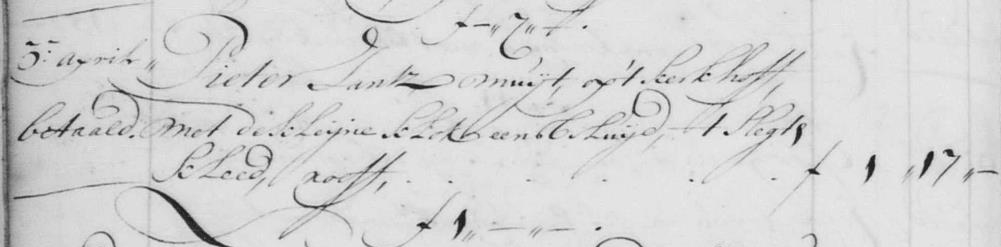 f - " 7 " -
3: april " Pieter Jantz muijt, op't kerkhoff,
betaald. met de kleijne klok eens b'luijd, 't slegts
kleed, rooff, . . . . . f 1 " 17 " -
f 1 " - " - .